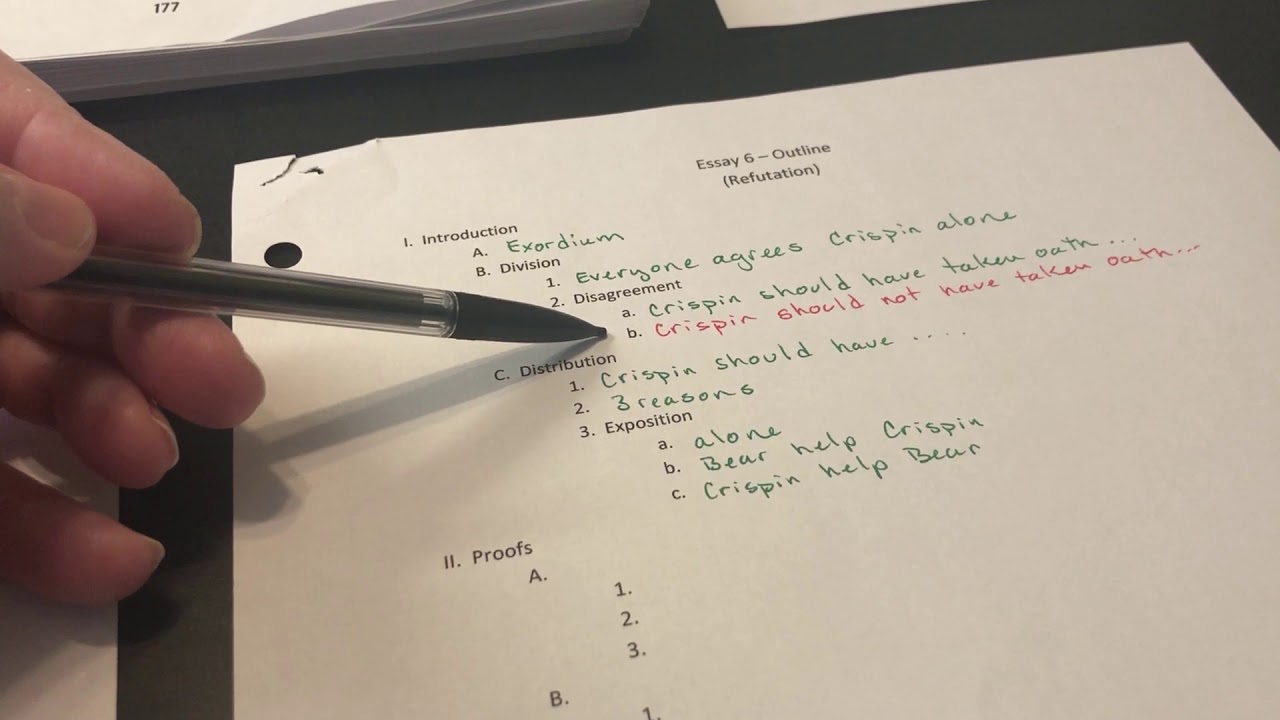 177
Essay 6 – Outline
(Refutation)
I. Introduction
A. Exordium
B. Division
1. Everyone agrees Crispin alone
2. Disagreement
a. Crispin should have taken oath ...
b. Crispin should not have taken oath...
C. Distribution
1. Crispin should have .....
2. 3 reasons
3. Exposition
a. alone
b. Bear help Crispin
c. Crispin help Bear
II. Proofs
A.
1.
2.
3.
B.
1.